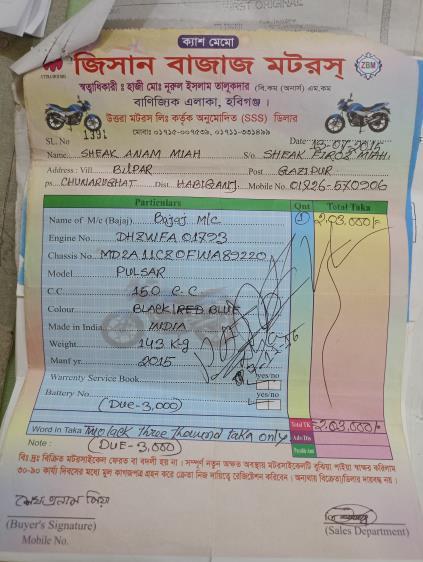 ক্যাশ মেমো
জিসান বাজাজ মটরস্
ZBM
স্বত্বাধিকারী ঃ হাজী মোঃ নুরুল ইসলাম তালুকদার (বি.কম (অনার্স) এম.কম
বাণিজ্যিক এলাকা, হবিগঞ্জ ।
উত্তরা মটরস লিঃ কর্তৃক অনুমোদিত (SSS) ডিলার
মোবাঃ ০১৭১৫-০০৭৫৩৯, ০১৭১১-৩৩১৪৯৯
SL.No 1391 Date
Name: SHEAK ANAM MIAH S/o SHEAK FIROZ MIAH
Address : Vill BILPAR Post GAZIPUR
PS CHUNARUGHAT Dist. HABIGANJ. Mobile No. 01726-570206
Particulars Qnt Total Taka
Name of M/c (Bajaj) Bajaj M/c 1 2,03,000/=
Engine No. DHZWFA 01793
Chassis No. MD2A11CZ0FWA89220
Model PULSAR
C.C. 150 C.C
Colour BLACK/RED BLUE
Made in India INDIA
Weight 143 K-g
Manf yr. 2015
Warranty Service Book yes/no
Battery No. yes/no
(Due-3,000)
Total TK 2,03,000/=
Word in Taka Two lack three thousand taka only
Note : (DUE-3,000)
বিঃ দ্রঃ বিক্রিত মটরসাইকেল ফেরত বা বদলী হয় না । সম্পূর্ণ নতুন অক্ষত অবস্থায় মটরসাইকেলটি বুঝিয়া পাইয়া স্বাক্ষর করিলাম
৩০-৯০ কার্য্য দিবসের মধ্যে মূল কাগজপত্র গ্রহন করে ক্রেতা নিজ দায়িত্বে রেজিষ্ট্রেশন করিবেন । অন্যথায় বিক্রেতা/ডিলার দায়বদ্ধ নয় ।
শেখ এনাম মিয়া
(Buyer's Signature) (Sales Department)
Mobile No.